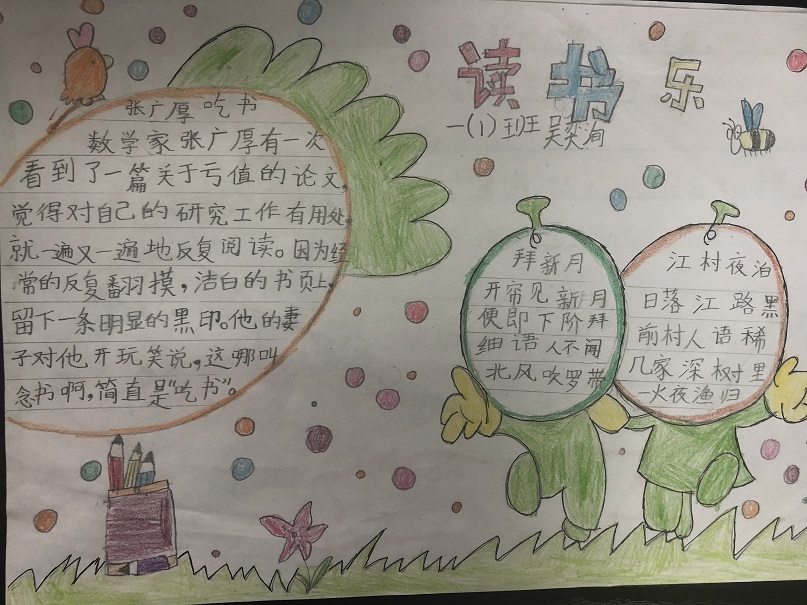 读书乐
一(1)班 吴奕洵
张广厚吃书
数学家张广厚有一次
看到了一篇关于亏值的论文，
觉得对自己的研究工作有用处，
就一遍又一遍地反复阅读。因为经
常的反复翻摸，洁白的书页上，
留下一条明显的黑印。他的妻
子对他开玩笑说，这哪叫
念书啊，简直是“吃书”。
拜新月
开帘见新月
便即下阶拜
细语人不闻
北风吹罗带
江村夜泊
日落江路黑
前村人语稀
几家深树里
一火夜渔归